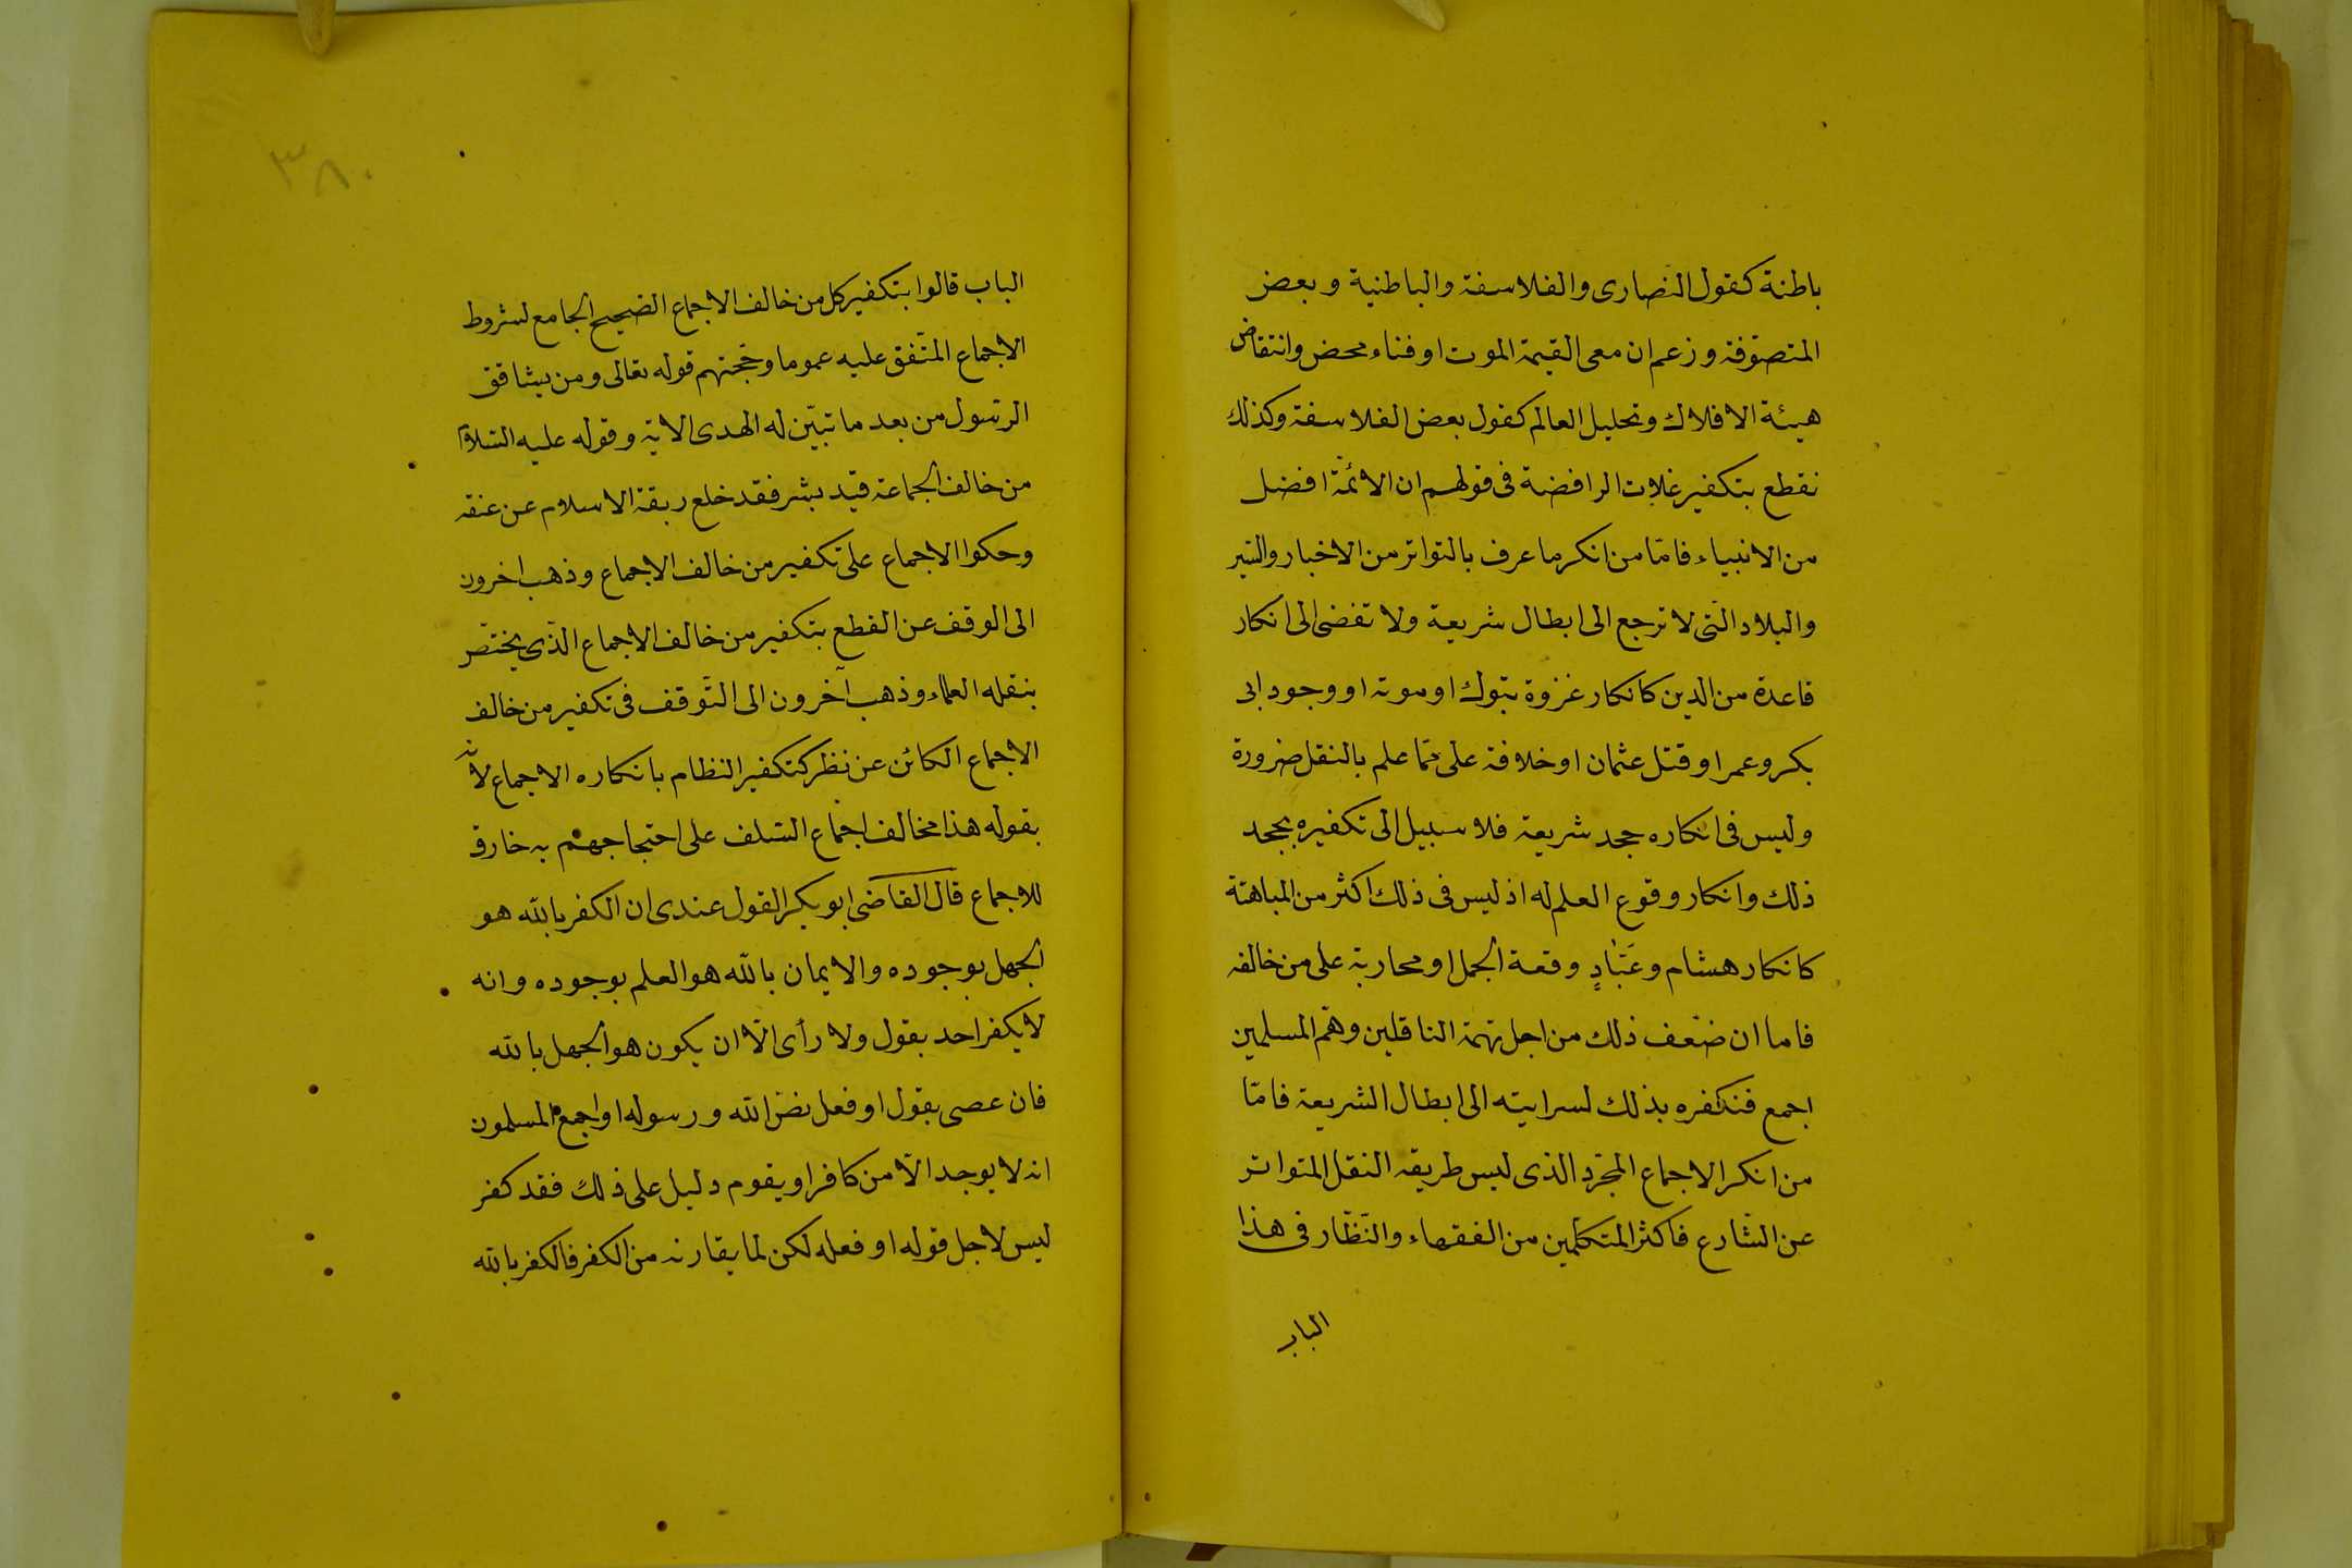 باطنة كقول النصارى والفلاسفة والباطنية وبعض
المتصوّفة وزعم ان معى القيمة الموت او فناء محض وانتقاض
هيئة الافلاك وتحليل العالم كقول بعض الفلاسفة وكذلك
نقطع بتكفير غلات الرافضة فى قولهم ان الائمّة افضل
من الانبياء فامّا من انكر ما عرف بالتواتر من الاخبار والسّير
والبلاد الّتى لا ترجع الى ابطال شريعة ولا تفضى الى انكار
قاعدة من الدين كانكار غزوة تبوك او موته او وجود ابى
بكر وعمر او قتل عثمان او خلافة على ممّا علم بالنقل ضرورة
وليس فى انكاره جحد شريعة فلا سبيل الى تكفيره بجحد
ذلك وانكار وقوع العلم له اذ ليس فى ذلك اكثر من المباهتة
كانكار هشام وعَبّادٍ وقعة الجمل او محاربة على من خالفه
فاما ان ضعّف ذلك من اجل تهمة الناقلين وهم المسلمين
اجمع فنكفره بذلك لسرايته الى ابطال الشريعة فامّا
من انكر الاجماع المجّرد الذى ليس طريقه النقل المتواتر
عن الشّارع فاكثر المتكلّمين من الفقهاء والنّظّار فى هذا
الباب
٣٨٠
الباب قالوا بتكفير كل من خالف الاجماع الصّحيح الجامع لشروط
الاجماع المتّفق عليه عموما وحّجتهم قوله تعالى ومن يشاقق
الرّسول من بعد ما تبيّن له الهدى الاية وقوله عليه السّلام
من خالف الجماعة قيد بشر فقد خلع ربقة الاسلام عن عنقه
وحكوا الاجماع على تكفير من خالف الاجماع وذهب اخرون
الى الوقف عن القطع بتكفير من خالف الاجماع الّذى يختصّ
بنقله العلماء وذهب آخرون الى التّوقف فى تكفير من خالف
الاجماع الكائن عن نظر كتكفير النظام بانكاره الاجماع لانّه
بقوله هذا مخالف اجماع السّلف على احتجاجهم به خارق
للاجماع قال القاضى ابو بكر القول عندى ان الكفر بالله هو
الجهل بوجوده والايمان بالله هو العلم بوجوده وانه
لا يكفر احد بقول ولا رأى الّا ان يكون هو الجهل بالله
فان عصى بقول او فعل نصّ الله ورسوله او اجمع المسلمون
انه لا يوجد الّا من كافر او يقوم دليل على ذلك فقد كفر
ليس لاجل قوله او فعله لكن لما يقارنه من الكفر فالكفر بالله